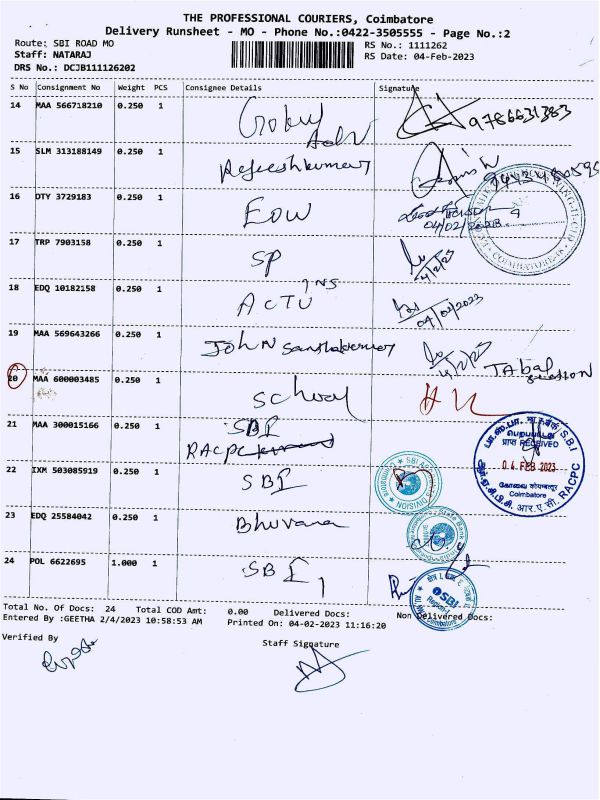 THE PROFESSIONAL COURIERS, Coimbatore
Delivery Runsheet - MO - Phone No.:0422-3505555 - Page No.:2
Route: SBI ROAD MO
RS No.: 1111262
Staff: NATARAJ
RS Date: 04-Feb-2023
DRS No.: DCJB111126202
S No Consignment No Weight PCS Consignee Details Signature
14 MAA 566718210 0.250 1 Goku 9786631383
Adv
15 SLM 313188149 0.250 1 Rejeeshkumar
16 DTY 3729183 0.250 1 EOW
04/02/2023
COIMBATORE
17 TRP 7903158 0.250 1 SP 4/2/23
18 EDQ 10182158 0.250 1 ACTU INS 04/02/2023
19 MAA 569643266 0.250 1 John 4/2/23
20 MAA 600003485 0.250 1 School
21 MAA 300015166 0.250 1 SBI
RACPC
22 IXM 503085919 0.250 1 SBI
प्राप्त RECEIVED
04 FEB 2023
கோவை कोयम्बत्तूर
Coimbatore
S.B.I RACPC
23 EDQ 25584042 0.250 1 Bhuvana
State Bank
24 POL 6622695 1.000 1 SBI
SBI
Total No. Of Docs: 24 Total COD Amt: 0.00 Delivered Docs: Non Delivered Docs:
Entered By :GEETHA 2/4/2023 10:58:53 AM Printed On: 04-02-2023 11:16:20
Verified By Staff Signature